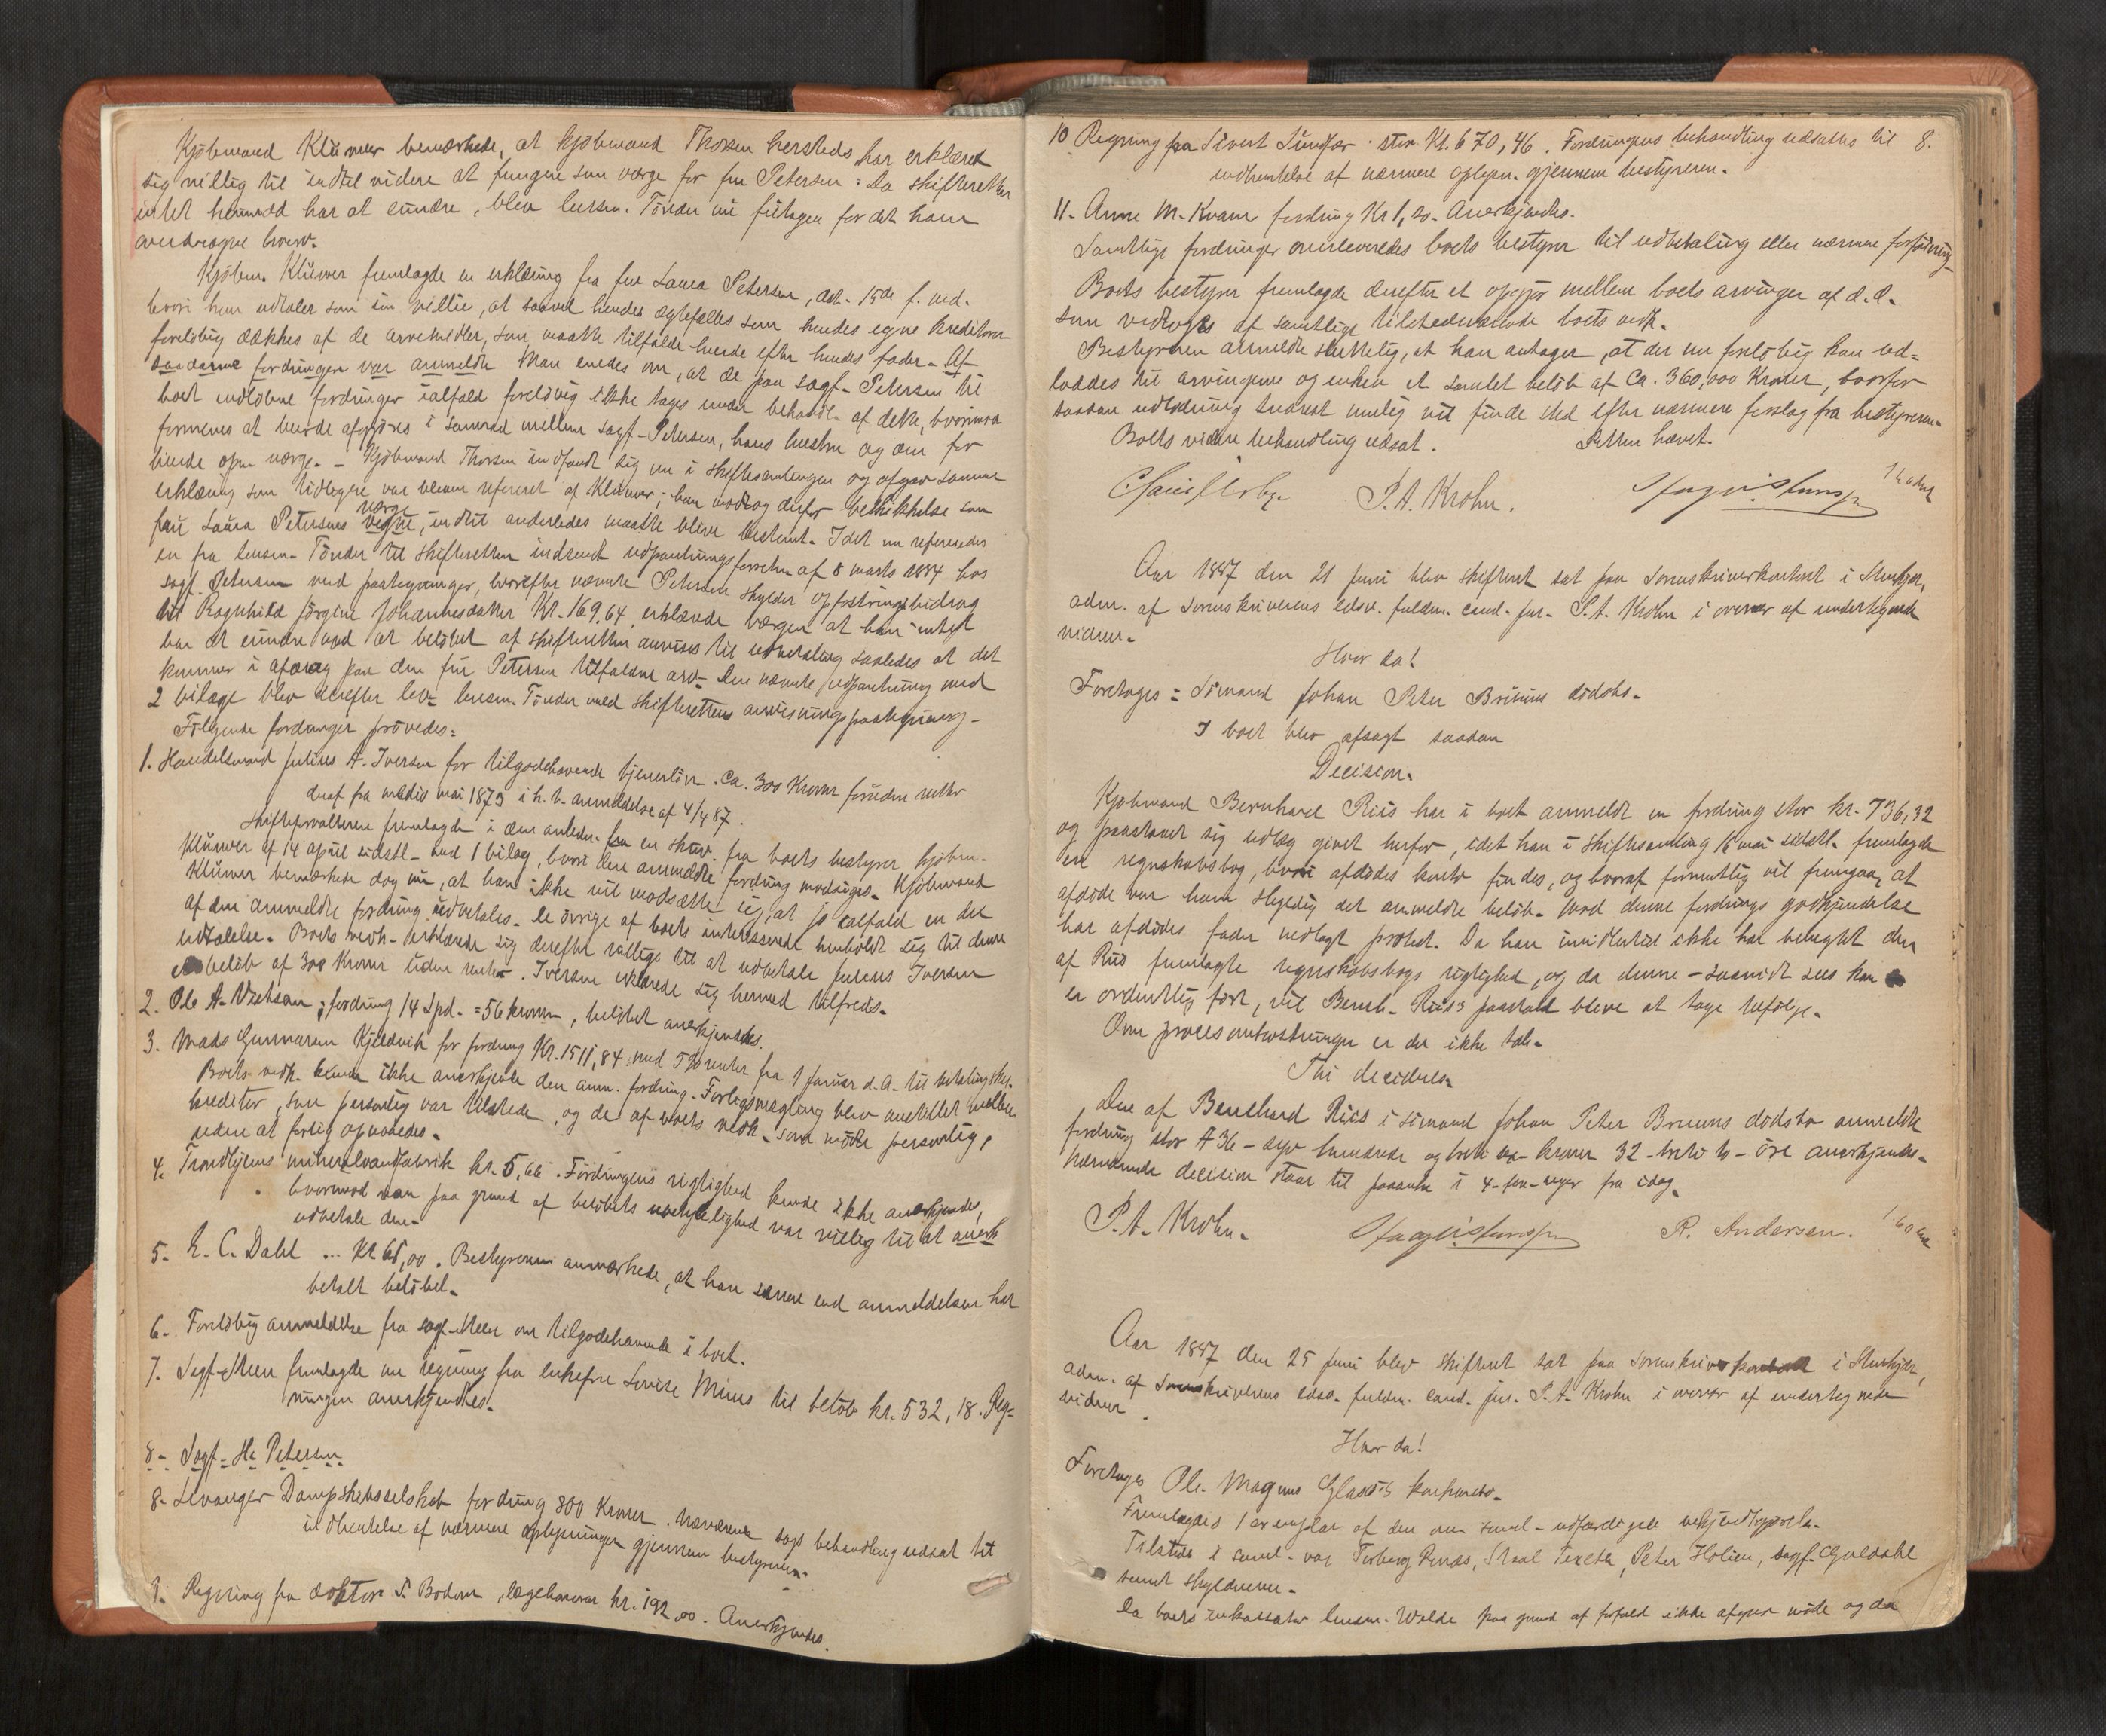 Kjöbmand Klüwer bemærkede, at kjöbmand Thorsen hersteds har erklæret
sig villig til indtil videre at fungere som værge for fru Petersen: Da skifteretten
intet hermed har at erindre, blev lensm. Tönder nu fritagen for det ham
overdragne hverv.
Kjöbm. Klüwer fremlagde en erklæring fra fru Laura Petersen, dat. 15de f. md.
hvori hun udtaler som sin villie, at saavel hendes ægtefælles som hendes egne kreditorer
forelöbig dækkes af de arvemidler, som maatte tilfalde hende efter hendes fader. Af
saadanne fordringer var anmeldt Man enedes om, at de paa sagf. Petersen til
boet indlöbne fordringer ialfald forelövig ikke tages under behandl. af dette, hvorimod
formenes at burde afgjöres i samraad mellem sagf. Petersen, hans hustru og den for
hende opn. værge. - Kjöbmand Thorsen indfandt sig nu i skiftesamlingen og afgav samme
erklæring som tidligere var bleven refereret af Klüwer; han modtog derfor beskikkelse som
værge
fru Laura Petersens vegne, indtil anderledes maatte blive bestemt. Idet nu refereredes
en fra lensm. Tönder til skifteretten indsendt udpantningsforretn. af 8 marts 1884 hos
sagf. Petersen med paategninger, hvorefter nævnte Petersen skylder opfostringsbidrag
til Ragnhild Jörgine Johannesdatter Kr. 169,64, erklærede værgen at han intet
har at erindre mod at belöbet af skifteretten anvises til udbetaling saaledes at det
kommer i afdrag paa den fru Petersen tilfaldne arv. Den nævnte udpantning med
2 bilage blev derefter lev. lensm. Tönder med skifterettens anvisningspaategning.
Fölgende fordringer prövedes:
1. Handelsmand Julius A. Iversen for tilgodehavende tjenerlön. Ca. 300 Kroner foruden renter
deraf fra medio mai 1879 i h. t. anmeldelse af 4/4 87.
Skifteforvalteren fremlagde i den anledn. en skriv. fra boets bestyrer kjöbm.
Klüwer af 14 april sidstl. med 1 bilag, hvori den anmeldte fordring modsiges. Kjöbmand
Klüwer bemærkede dog nu, at han ikke vil modsætte sig, at jo ialfald en del
af den anmeldte fordring udbetales. De övrige af boets interesserede henholdt sig til denne
udtalelse. Boets vedk. erklærede sig derefter villige til at udbetale Julius Iversen
et belöb af 300 Kroner uden renter. Iversen erklærede sig hermed tilfreds.
2. Ole A. fordring 14 Spd. = 56 kroner, belöbet anerkjendtes.
3. Mads Gunnarsen Kjeldvik for fordring Kr. 1511,84 med 5 % renter fra 1 januar d. A. til betaling sker.
Boets vedk. kunde ikke anerkjende den anm. fordring. Forligsmægling blev anstillet mellem
kreditor, som personlig var tilstede, og de af boets vedk. som mödte personlig,
uden at forlig opnaaedes.
4. Trondhjems mineralvandfabrik kr. 5,66. Fordringens rigtighed kunde ikke anerkjendes,
hvormod man paa grund af belöbets ubetydelighed var villig til at
udbetale den.
5. E. C. Dahl ... Kr. 65,00. Bestyreren anmærkede, at han senere end anmeldelsen har
betalt belöbet.
6. Forelöbig anmeldelse fra sagf. Steen om tilgodehavende i boet.
7. Sagf. Steen fremlagde nu regning fra enkefru Lovise Minus til belöb kr. 532,18. Reg-
ningen anerkjendtes.
8. Sagf. H. Petersen
8. Levanger Dampskibsselskab fordring 800 Kroner. Nærværende sags behandling udsat til
indhentelse af nærmere oplysninger gjennem bestyreren.
9. Regning fra doktor Bodom, lægehonorar kr. 192,00. Anerkjendes.
10 Regning fra Sivert Sundfær stor Kr. 670,46. Fordringens behandling udsættes til 8.
indhentelse af nærmere oplysn. gjennem bestyreren.
11. Anne M. Kvam fordring Kr 1,20. Anerkjendes.
Samtlige fordringer overleveredes boets bestyrer til udbetaling eller nærmere forföining.
Boets bestyrer fremlagde derefter et opgjör mellem boets arvinger af d. d.
som vedtoges af samtlige tilstedeværende boets vedk.
Bestyreren anmeldte sluttelig, at han antager, at der nu forelöbig kan ud-
loddes til arvingerne og enken et samlet belöb af Ca. 360,000 Kroner, hvorfor
saadan udlodning snarest mulig vil finde sted efter nærmere forslag fra bestyreren.
Boets videre behandling udsat. Retten hævet.
P. A. Krohn.
Aar 1887 den 21 juni blev skifteret sat paa sorenskriverkontoret i Stenkjær,
adm. af sorenskriverens edsv. fuldm. cand. jur. P. A. Krohn i overvær af undertegnede
vidner.
Hvor da!
Foretoges = Sömand Johan Peter Bruuns dödsbo.
I boet blev afsagt saadan
Decision.
Kjöbmand Bernhard Riis har i boet anmeldt en fordring stor kr. 736,32
og paastaaet sig udlæg givet herfor, idet han i skiftesamling 16 mai sidstl. fremlagde
en regnskabsbog, hvori afdödes konto findes, og hvoraf formentlig vil fremgaa, at
afdöde var ham skyldig det anmeldte belöb. Mod denne fordrings godkjendelse
har afdödes fader nedlagt protest. Da han imidlertid ikke har benegtet den
af Riis fremlagte regnskabsbogs rigtighed, og da denne - saavidt sees kan
er ordentlig fört, vil Bernh. Riis's paastand blive at tage tilfölge.
Om procesomkostninger er der ikke tale.
Thi decideres:
Den af Bernhard Riis i sömand Johan Peter Bruuns dödsbo anmeldte
fordring stor 736 - syv hundrede og treti sex - kroner 32 - treti to - öre anerkjendes.
Nærværende decision staar til paaanke i 4 - fire - uger fra idag.
P. A. Krohn. R. Andersen.
Aar 1887 den 25 juni blev skifteret sat paa sorenskriverkontoret i Stenkjær,
adm. af sorenskriverens edsv. fuldm. cand. jur. P. A. Krohn i overvær af undertegnede
vidner.
Hvor da!
Foretoges Ole Magnus Glasö's konkursbo.
Fremlagdes 1 exemplar af den om saml. udfærdigede bekjendtgjörelse.
Tilstede i saml. var Torberg Renæs, Staal Texeth, Peter Holien, sagf. Guldahl
samt skyldneren.
Da boets inkassator lensm. Wolde paa grund af forfald ikke afgiver möde og da